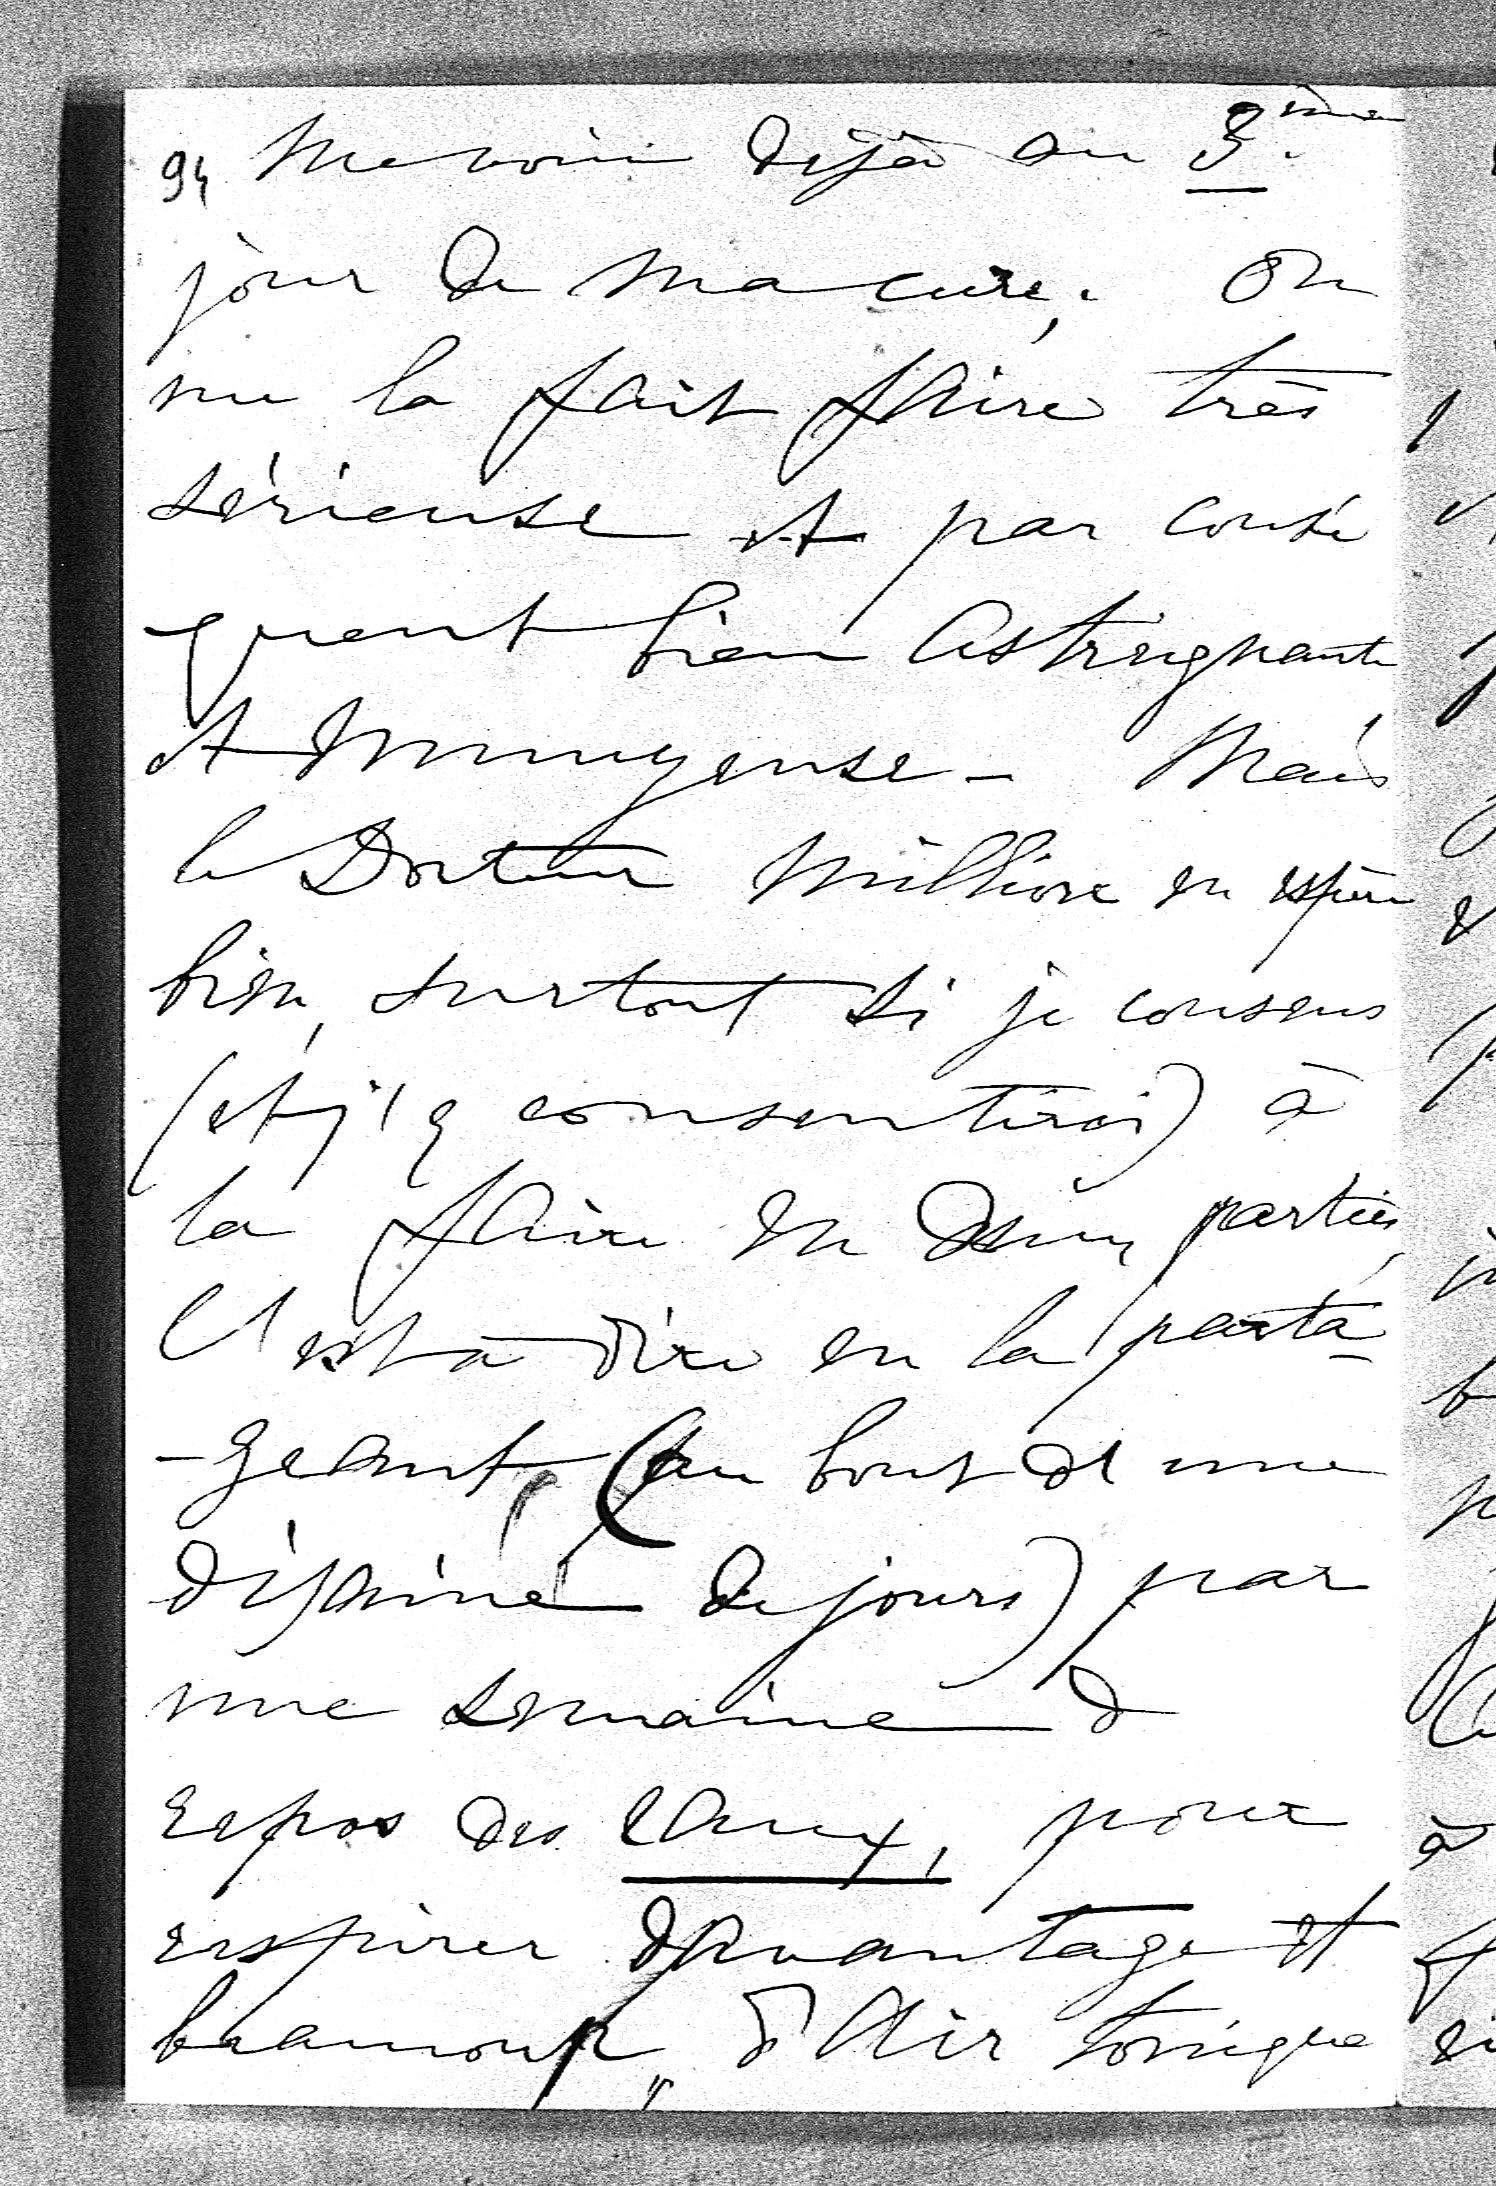 94 Me voici déjà au 3ème
jour de ma cure. On
me la fait faire très
sérieuse et par consé
quent bien astreignante
et ennuyeuse - Mais
le Docteur Millior en espère
bien, surtout si je consens
(et j'y consentirai) à
la faire en deux parties,
C'est à dire en la parta-
-geant (au bout d'une
dizaine de jours) par
une semaine de
repos des eaux, pour
respirer davantage et
beaucoup, d'air tonique